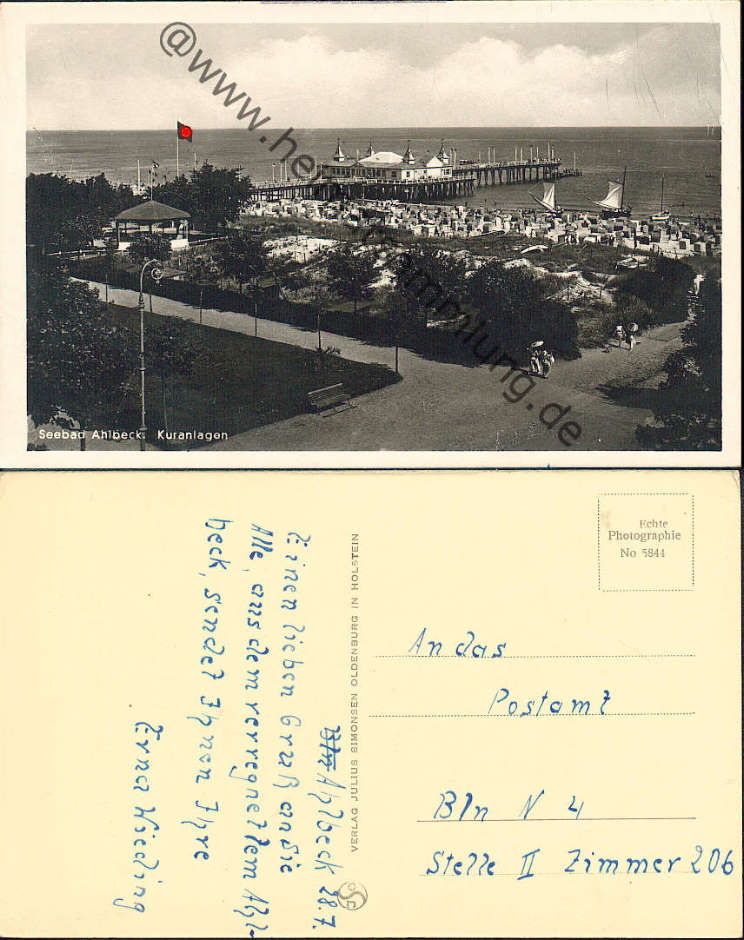 @www.heimatsammlung.de
Seebad Ahlbeck. Kuranlagen
Echte
Photographie
No 5844
VERLAG JULIUS SIMONSEN OLDENBURG IN HOLSTEIN
Bln Ahlbeck 28.7.
Einen lieben Gruß an Sie
Alle, aus dem verregnetem Ahl-
beck, sendet Ihnen Ihre
Erna Wieding
An das
Postamt
Bln N 4
Stelle II Zimmer 206